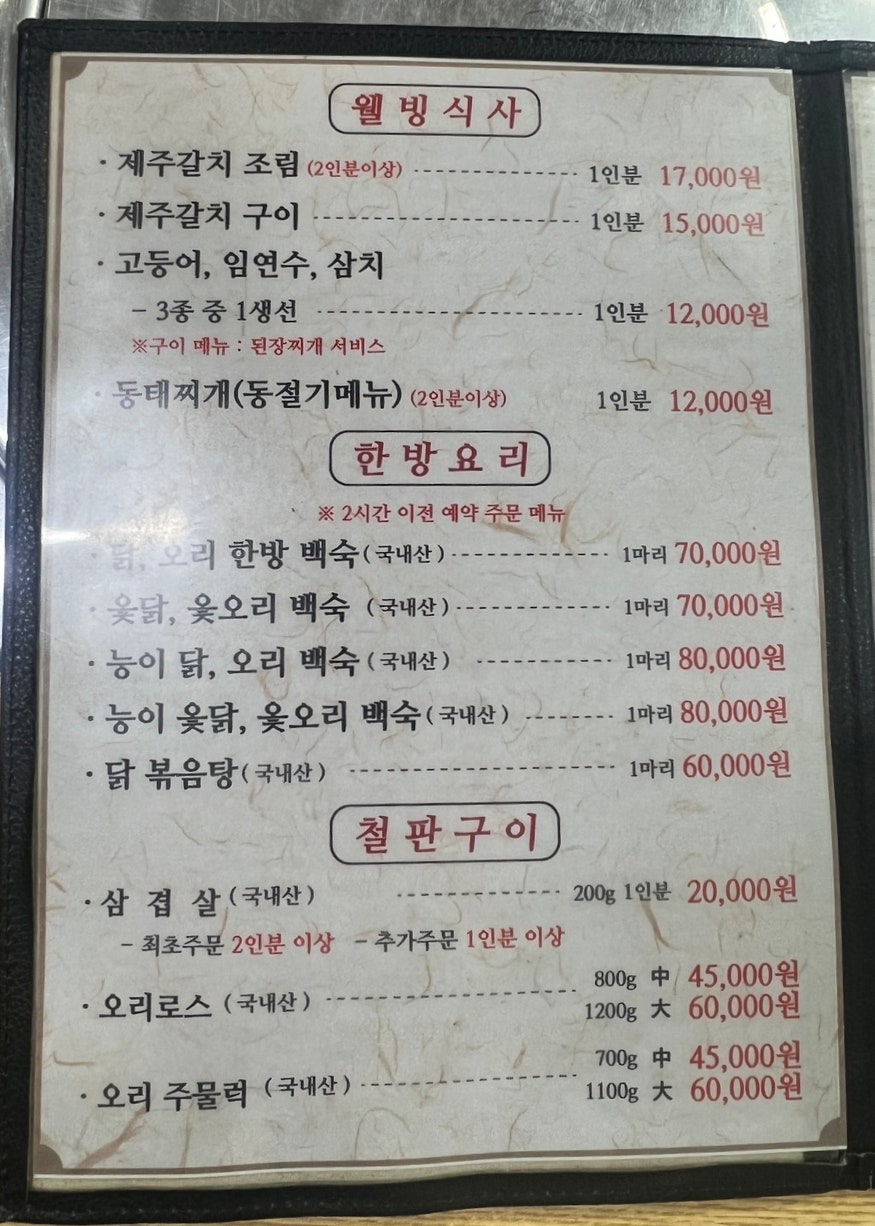 웰빙식사
· 제주갈치 조림 (2인분이상) 1인분 17,000원
· 제주갈치 구이 1인분 15,000원
· 고등어, 임연수, 삼치
- 3종 중 1생선 1인분 12,000원
※구이 메뉴 : 된장찌개 서비스
· 동태찌개(동절기메뉴) (2인분이상) 1인분 12,000원
한방요리
※ 2시간 이전 예약 주문 메뉴
· 닭, 오리 한방 백숙 (국내산) 1마리 70,000원
· 옻닭, 옻오리 백숙 (국내산) 1마리 70,000원
· 능이 닭, 오리 백숙 (국내산) 1마리 80,000원
· 능이 옻닭, 옻오리 백숙 (국내산) 1마리 80,000원
· 닭 볶음탕 (국내산) 1마리 60,000원
철판구이
· 삼 겹 살 (국내산) 200g 1인분 20,000원
- 최초주문 2인분 이상 - 추가주문 1인분 이상
800g 中 45,000원
· 오리로스 (국내산) 1200g 大 60,000원
700g 中 45,000원
· 오리 주물럭 (국내산) 1100g 大 60,000원